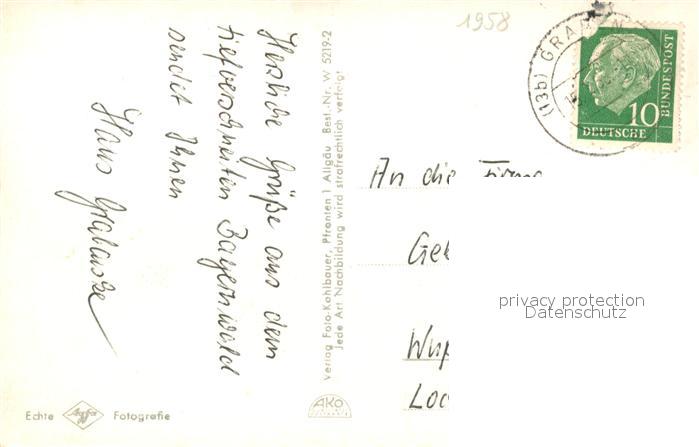 1958
Herzliche Grüße aus dem
tiefverschneiten Bayernwald
sendet Ihnen
Hans
Verlag Foto-Kohlbauer, Pfronten 1 Allgäu Best.-Nr. W 5219-2
Jede Art Nachbildung wird strafrechtlich verfolgt
(13b) GRAFEN
10
DEUTSCHE
BUNDESPOST
An die Firma
Geb
Wup
Loc
privacy protection
Datenschutz
Echte Agfa Fotografie
AKO